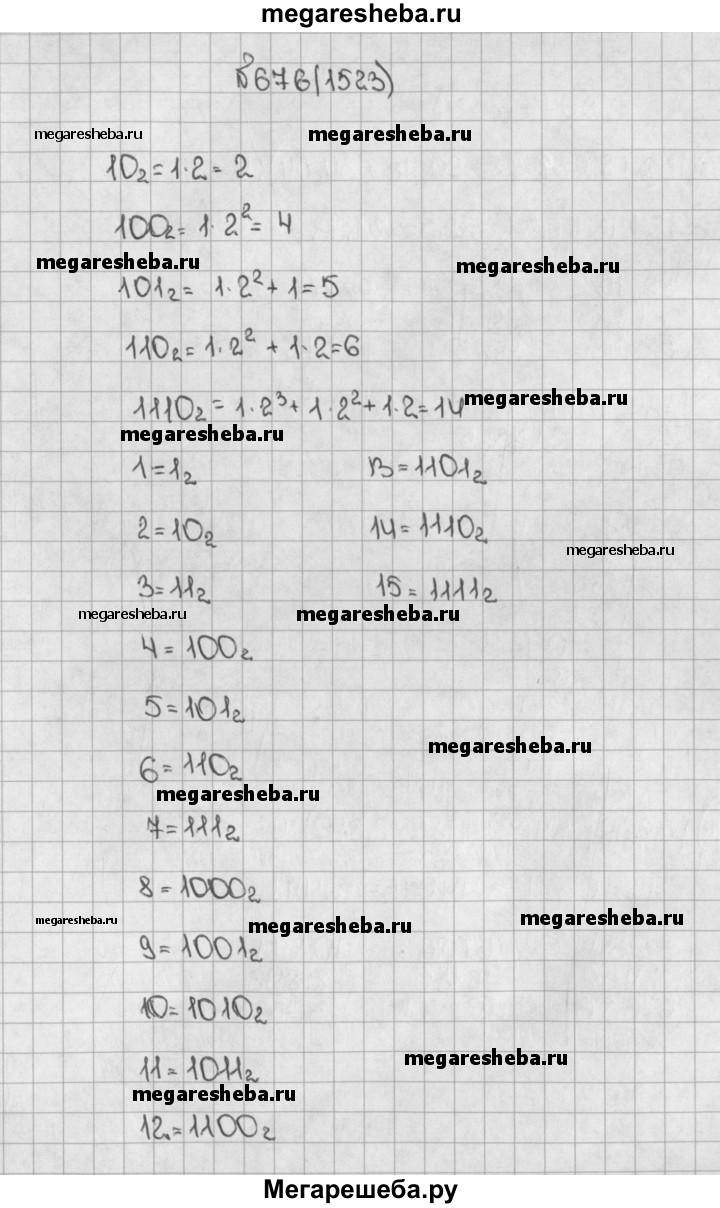 megaresheba.ru
№676(1523)
megaresheba.ru megaresheba.ru
10₂=1·2=2
100₂=1·2²=4
megaresheba.ru megaresheba.ru
101₂=1·2²+1=5
110₂=1·2²+1·2=6
1110₂=1·2³+1·2²+1·2=14 megaresheba.ru
megaresheba.ru
1=1₂ 13=1101₂
2=10₂ 14=1110₂
megaresheba.ru
3=11₂ 15=1111₂
megaresheba.ru megaresheba.ru
4=100₂
5=101₂
megaresheba.ru
6=110₂
megaresheba.ru
7=111₂
8=1000₂
megaresheba.ru megaresheba.ru megaresheba.ru
9=1001₂
10=1010₂
megaresheba.ru
11=1011₂
megaresheba.ru
12.=1100₂
Мегарешеба.ру